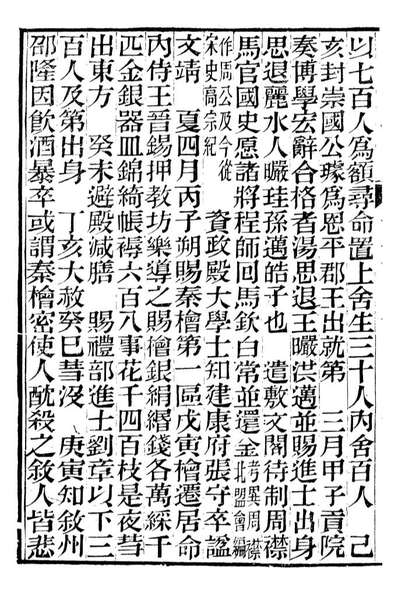 以七百人爲額尋命置上舍生三十人内舍百人　己
亥封崇國公璩爲恩平郡王出就第　三月甲子貢院
奏博學宏辭合格者湯思退王曮洪邁並賜進士出身
思退麗水人曮珪孫邁皓子也　遣敷文閣待制周襟
馬官國史愿諸將程師回馬欽白常並還金考異周襟北盟會編
作周公及今從宋史高宗紀　資政殿大學士知建康府張守卒諡
文靖　夏四月丙子朔賜秦檜第一區戊寅檜遷居命
内侍王晉錫押教坊樂導之賜檜銀絹緡錢各萬綵千
匹金銀器皿錦綺帳褥六百八事花千四百枝是夜彗
出東方　癸未避殿減膳　賜禮部進士劉章以下三
百人及第出身　丁亥大赦癸巳彗沒　庚寅知敘州
邵隆因飲酒暴卒或謂秦檜密使人酖殺之敘人皆悲